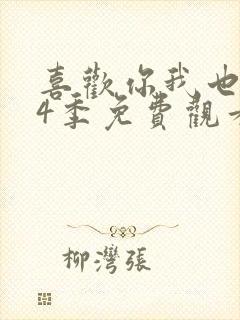 喜歡你我也
4季免費觀看
柳灣張